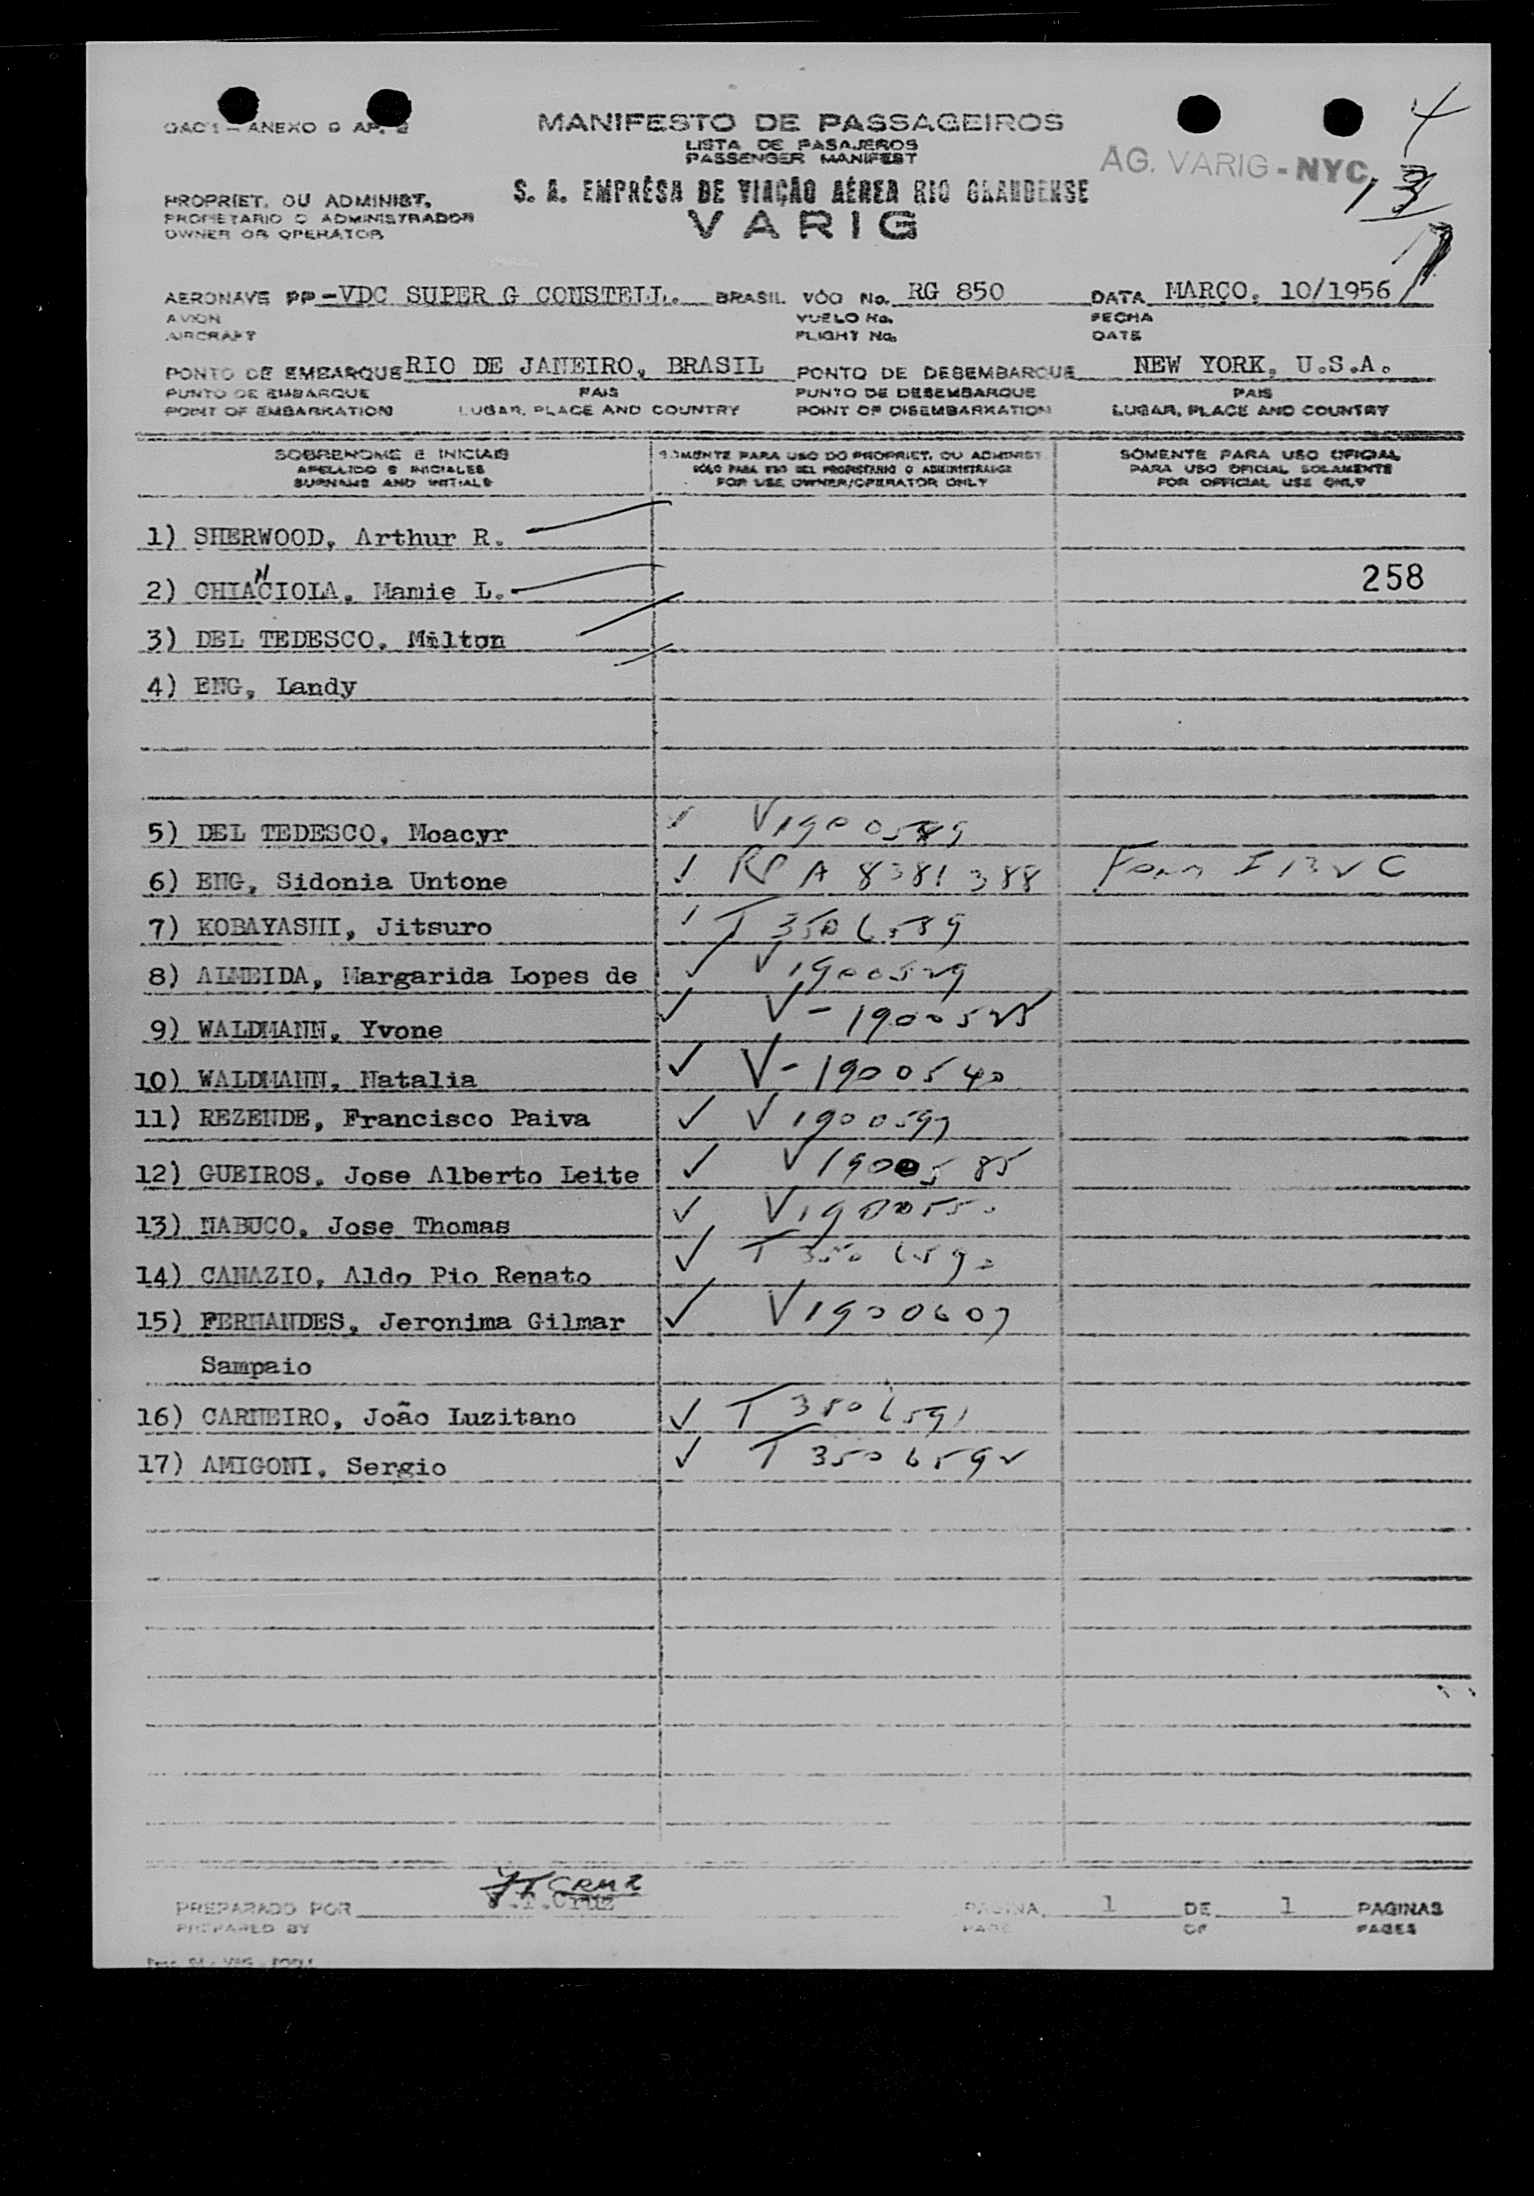 OACI - ANEXO 9 AP. 2
MANIFESTO DE PASSAGEIROS
LISTA DE PASAJEROS
PASSENGER MANIFEST
AG. VARIG - NYC
4
13
PROPRIET. OU ADMINIST.
PROPIETARIO O ADMINISTRADOR
OWNER OR OPERATOR
S. A. EMPRÊSA DE VIAÇÃO AÉREA RIO GRANDENSE
VARIG
AERONAVE PP-VDC SUPER G CONSTELL. BRASIL VÔO No. RG 850 DATA MARÇO, 10/1956
AVION VUELO No. FECHA
AIRCRAFT FLIGHT No. DATE
PONTO DE EMBARQUE RIO DE JANEIRO, BRASIL PONTO DE DESEMBARQUE NEW YORK, U.S.A.
PUNTO DE EMBARQUE PAIS PUNTO DE DESEMBARQUE PAIS
POINT OF EMBARKATION LUGAR, PLACE AND COUNTRY POINT OF DISEMBARKATION LUGAR, PLACE AND COUNTRY
SOBRENOME E INICIAIS SOMENTE PARA USO DO PROPRIET. OU ADMINIST. SOMENTE PARA USO OFICIAL
APELLIDO E INICIALES SOLO PARA USO DEL PROPIETARIO O ADMINISTRADOR PARA USO OFICIAL SOLAMENTE
SURNAME AND INITIALS FOR USE OWNER/OPERATOR ONLY FOR OFFICIAL USE ONLY
1) SHERWOOD, Arthur R.
2) CHIANCIOLA, Mamie L. 258
3) DEL TEDESCO, Milton
4) ENG, Landy
5) DEL TEDESCO, Moacyr ✓ V1900589
6) ENG, Sidonia Untone ✓ RP A 8381388 Form I
7) KOBAYASHI, Jitsuro ✓ T 3506589
8) ALMEIDA, Margarida Lopes de ✓ V1900529
9) WALDMANN, Yvone ✓ V-1900525
10) WALDMANN, Natalia ✓ V-1900540
11) REZENDE, Francisco Paiva ✓ V1900597
12) GUEIROS, Jose Alberto Leite ✓ V1900585
13) NABUCO, Jose Thomas ✓ V1900550
14) CANAZIO, Aldo Pio Renato ✓ T 3506590
15) FERNANDES, Jeronima Gilmar ✓ V1900607
Sampaio
16) CARNEIRO, João Luzitano ✓ T 3506591
17) AMIGONI, Sergio ✓ T 3506592
YT Cruz
PREPARADO POR Y.T.Cruz PAGINA 1 DE 1 PAGINAS
PREPARED BY PAGE OF PAGES